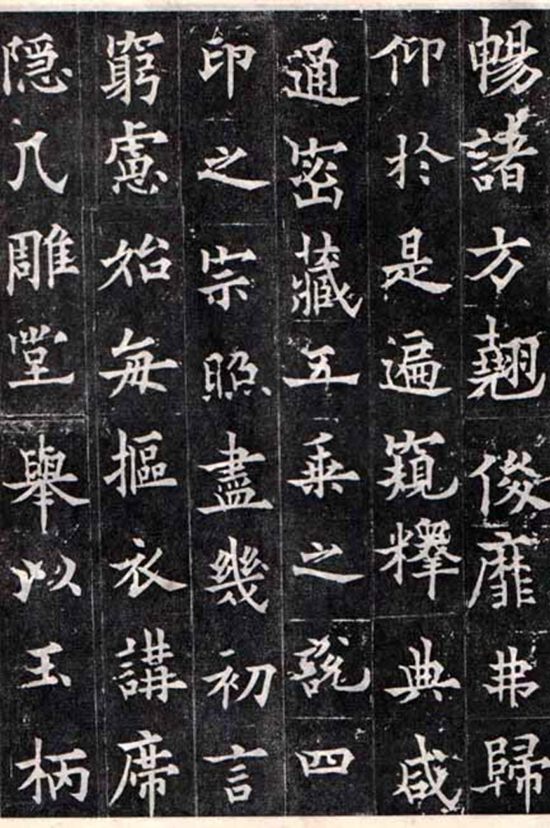 暢諸方翹俊靡弗歸
仰於是遍窺釋典咸
通密藏五乘之說四
印之宗照盡幾初言
窮慮始每摳衣講席
隠几雕堂舉以玉柄